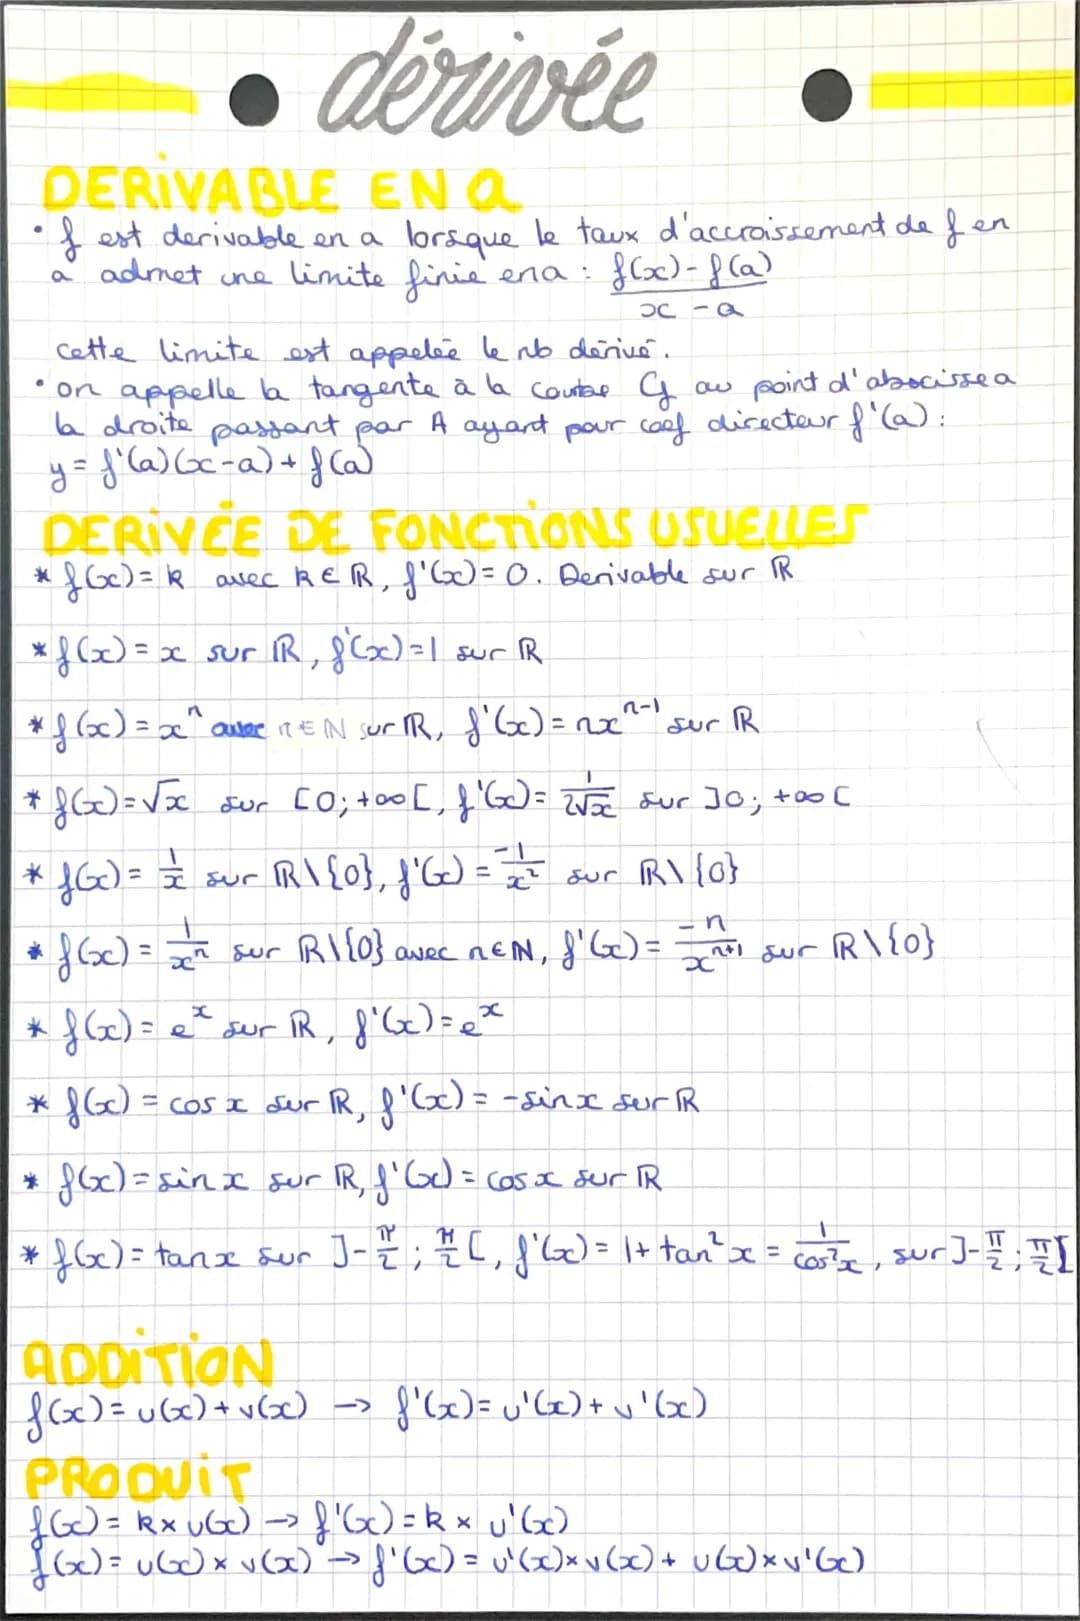 dérivée
DERIVABLE EN a
• f est derivable en a lorsque le taux d'accroissement de f en
a admet une limite finie en a : f(x)-f(a) / x-a
cette limite est appelée le nb dérivé.
• on appelle la tangente à la courbe Cf au point d'abscisse a
la droite passant par A ayant pour coef directeur f'(a):
y = f'(a)(x-a) + f(a)
DERIVÉE DE FONCTIONS USUELLES
* f(x) = k avec k ∈ ℝ, f'(x) = 0. Derivable sur ℝ
* f(x) = x sur ℝ, f'(x) = 1 sur ℝ
* f(x) = xⁿ avec n ∈ ℕ sur ℝ, f'(x) = nxⁿ⁻¹ sur ℝ
* f(x) = √x sur [0; +∞[, f'(x) = 1/(2√x) sur ]0; +∞[
* f(x) = 1/x sur ℝ\{0}, f'(x) = -1/x² sur ℝ\{0}
* f(x) = 1/xⁿ sur ℝ\{0} avec n ∈ ℕ, f'(x) = -n/xⁿ⁺¹ sur ℝ\{0}
* f(x) = eˣ sur ℝ, f'(x) = eˣ
* f(x) = cos x sur ℝ, f'(x) = -sin x sur ℝ
* f(x) = sin x sur ℝ, f'(x) = cos x sur ℝ
* f(x) = tan x sur ]-π/2 ; π/2[, f'(x) = 1 + tan² x = 1/cos²x, sur ]-π/2 ; π/2[
ADDITION
f(x) = u(x) + v(x) → f'(x) = u'(x) + v'(x)
PRODUIT
f(x) = k × u(x) → f'(x) = k × u'(x)
f(x) = u(x) × v(x) → f'(x) = u'(x) × v(x) + u(x) × v'(x)